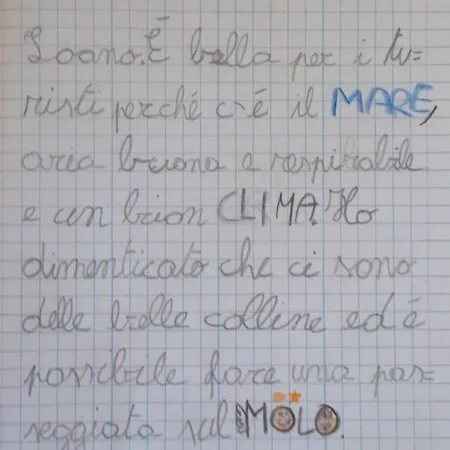 Loano. È bella per i tu=
risti perché c'é il MARE,
aria buona e respirabile
e un buon CLIMA. Ho
dimenticato che ci sono
delle belle colline ed é
possibile fare una pas=
seggiata sul MOLO.